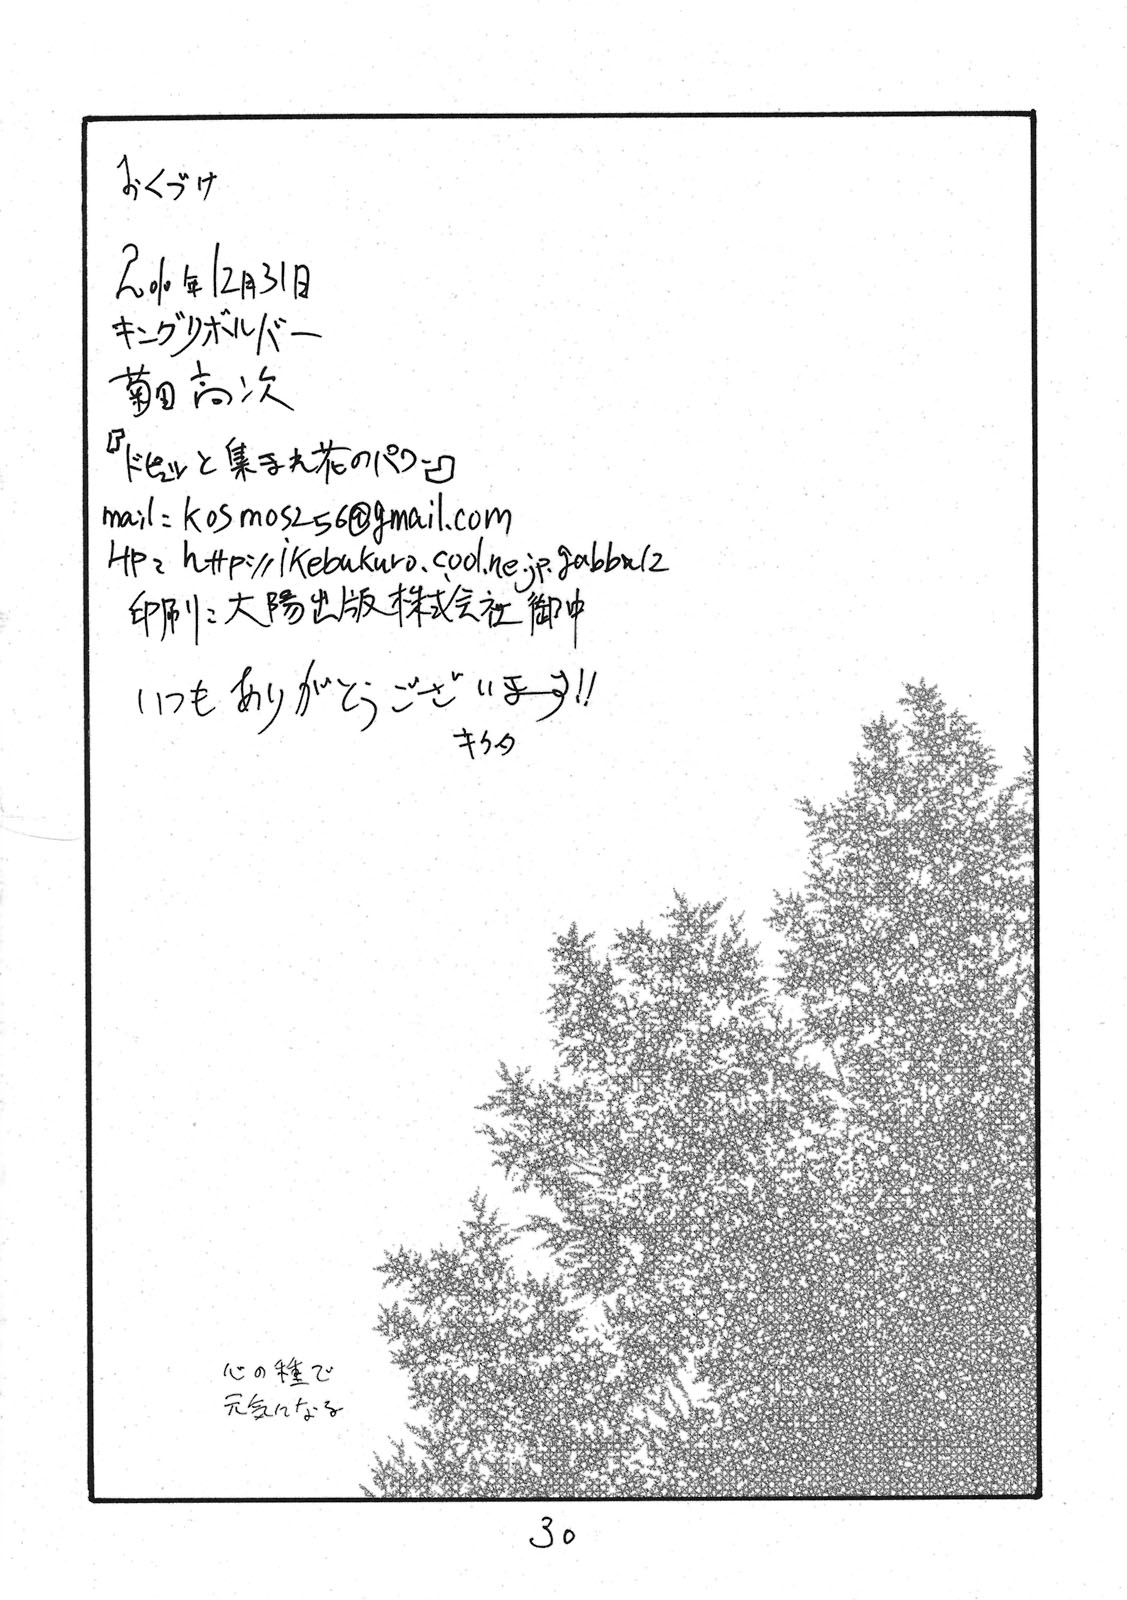 おくづけ
2010年12月31日
キングリボルバー
菊田高次
『ドピュッと集まれ花のパワー』
mail: kosmos256@gmail.com
HP: http://ikebukuro.cool.ne.jp.gabba12
印刷:大陽出版株式会社御中
いつもありがとうございまーす!!
キクタ
心の種で
元気になる
30